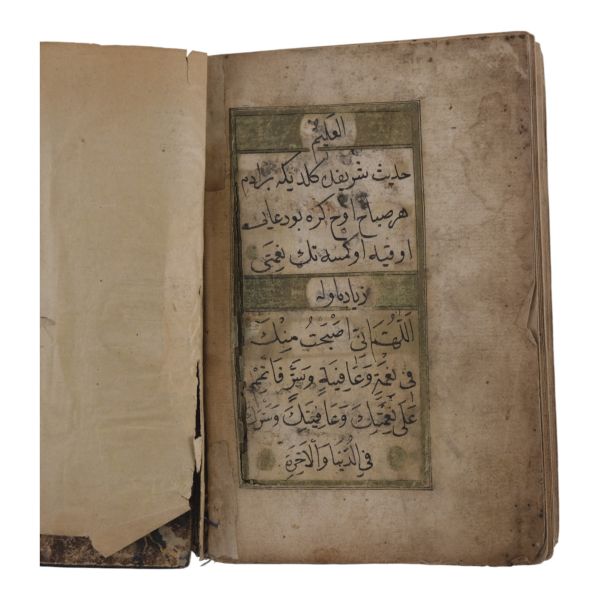 العليم
حديث شريفده كلمشدركه بر ادم
هر صباح اوچ كره بو دعايى
اوقيه اوكمسه نك نعمتى
زياده اوله
اَللّٰهُمَّ اِنّى اَصْبَحْتُ مِنْكَ
فى نِعْمَةٍ وَعَافِيَةٍ وَسِتْرٍ فَاَتْمِمْ
عَلَىَّ نِعْمَتَكَ وَعَافِيَتَكَ وَسِتْرَكَ
فِى الدُّنْيَا وَالْاٰخِرَةِ